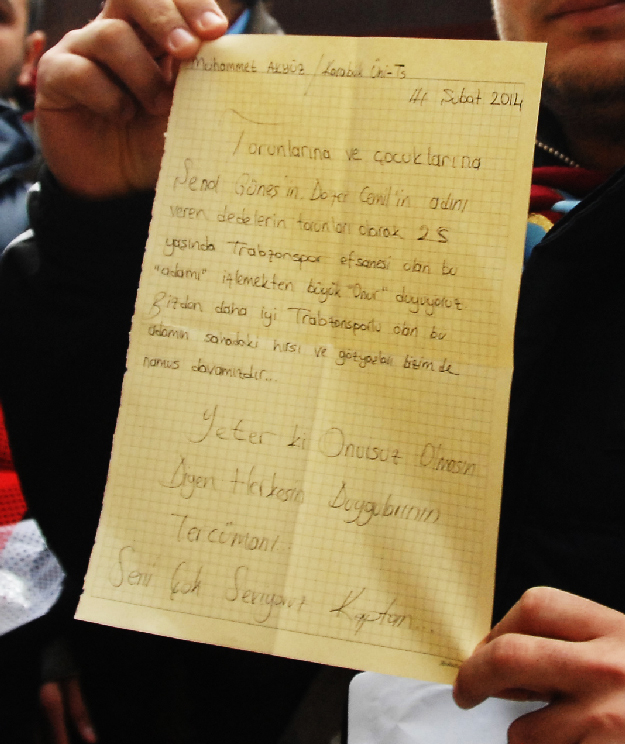 Muhammet Akyüz / Karabük Üni-Ts
14 Şubat 2014
Torunlarına ve çocuklarına
Şenol Güneş'in, Dozer Cemil'in adını
veren dedelerin torunları olarak 25
yaşında Trabzonspor efsanesi olan bu
"adamı" izlemekten büyük "Onur" duyuyoruz
Bizden daha iyi Trabzonsporlu olan bu
adamın sahadaki hırsı ve gözyaşları bizim de
namus davamızdır...
Yeter ki Onursuz Olmasın
Diyen Herkesin Duygularının
Tercümanı
Seni Çok Seviyoruz Kaptan...